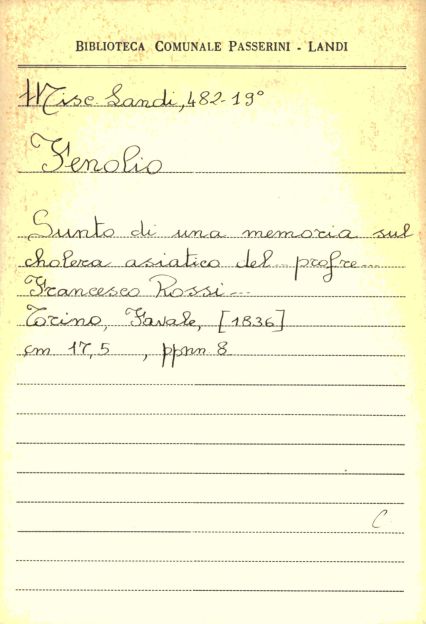 BIBLIOTECA COMUNALE PASSERINI - LANDI
Misc. Landi, 482-19°
Fenolio
Sunto di una memoria sul
cholera asiatico del... profre...
Francesco Rossi...
Torino, Favale, [1836]
cm 17,5 , ppnn 8
C